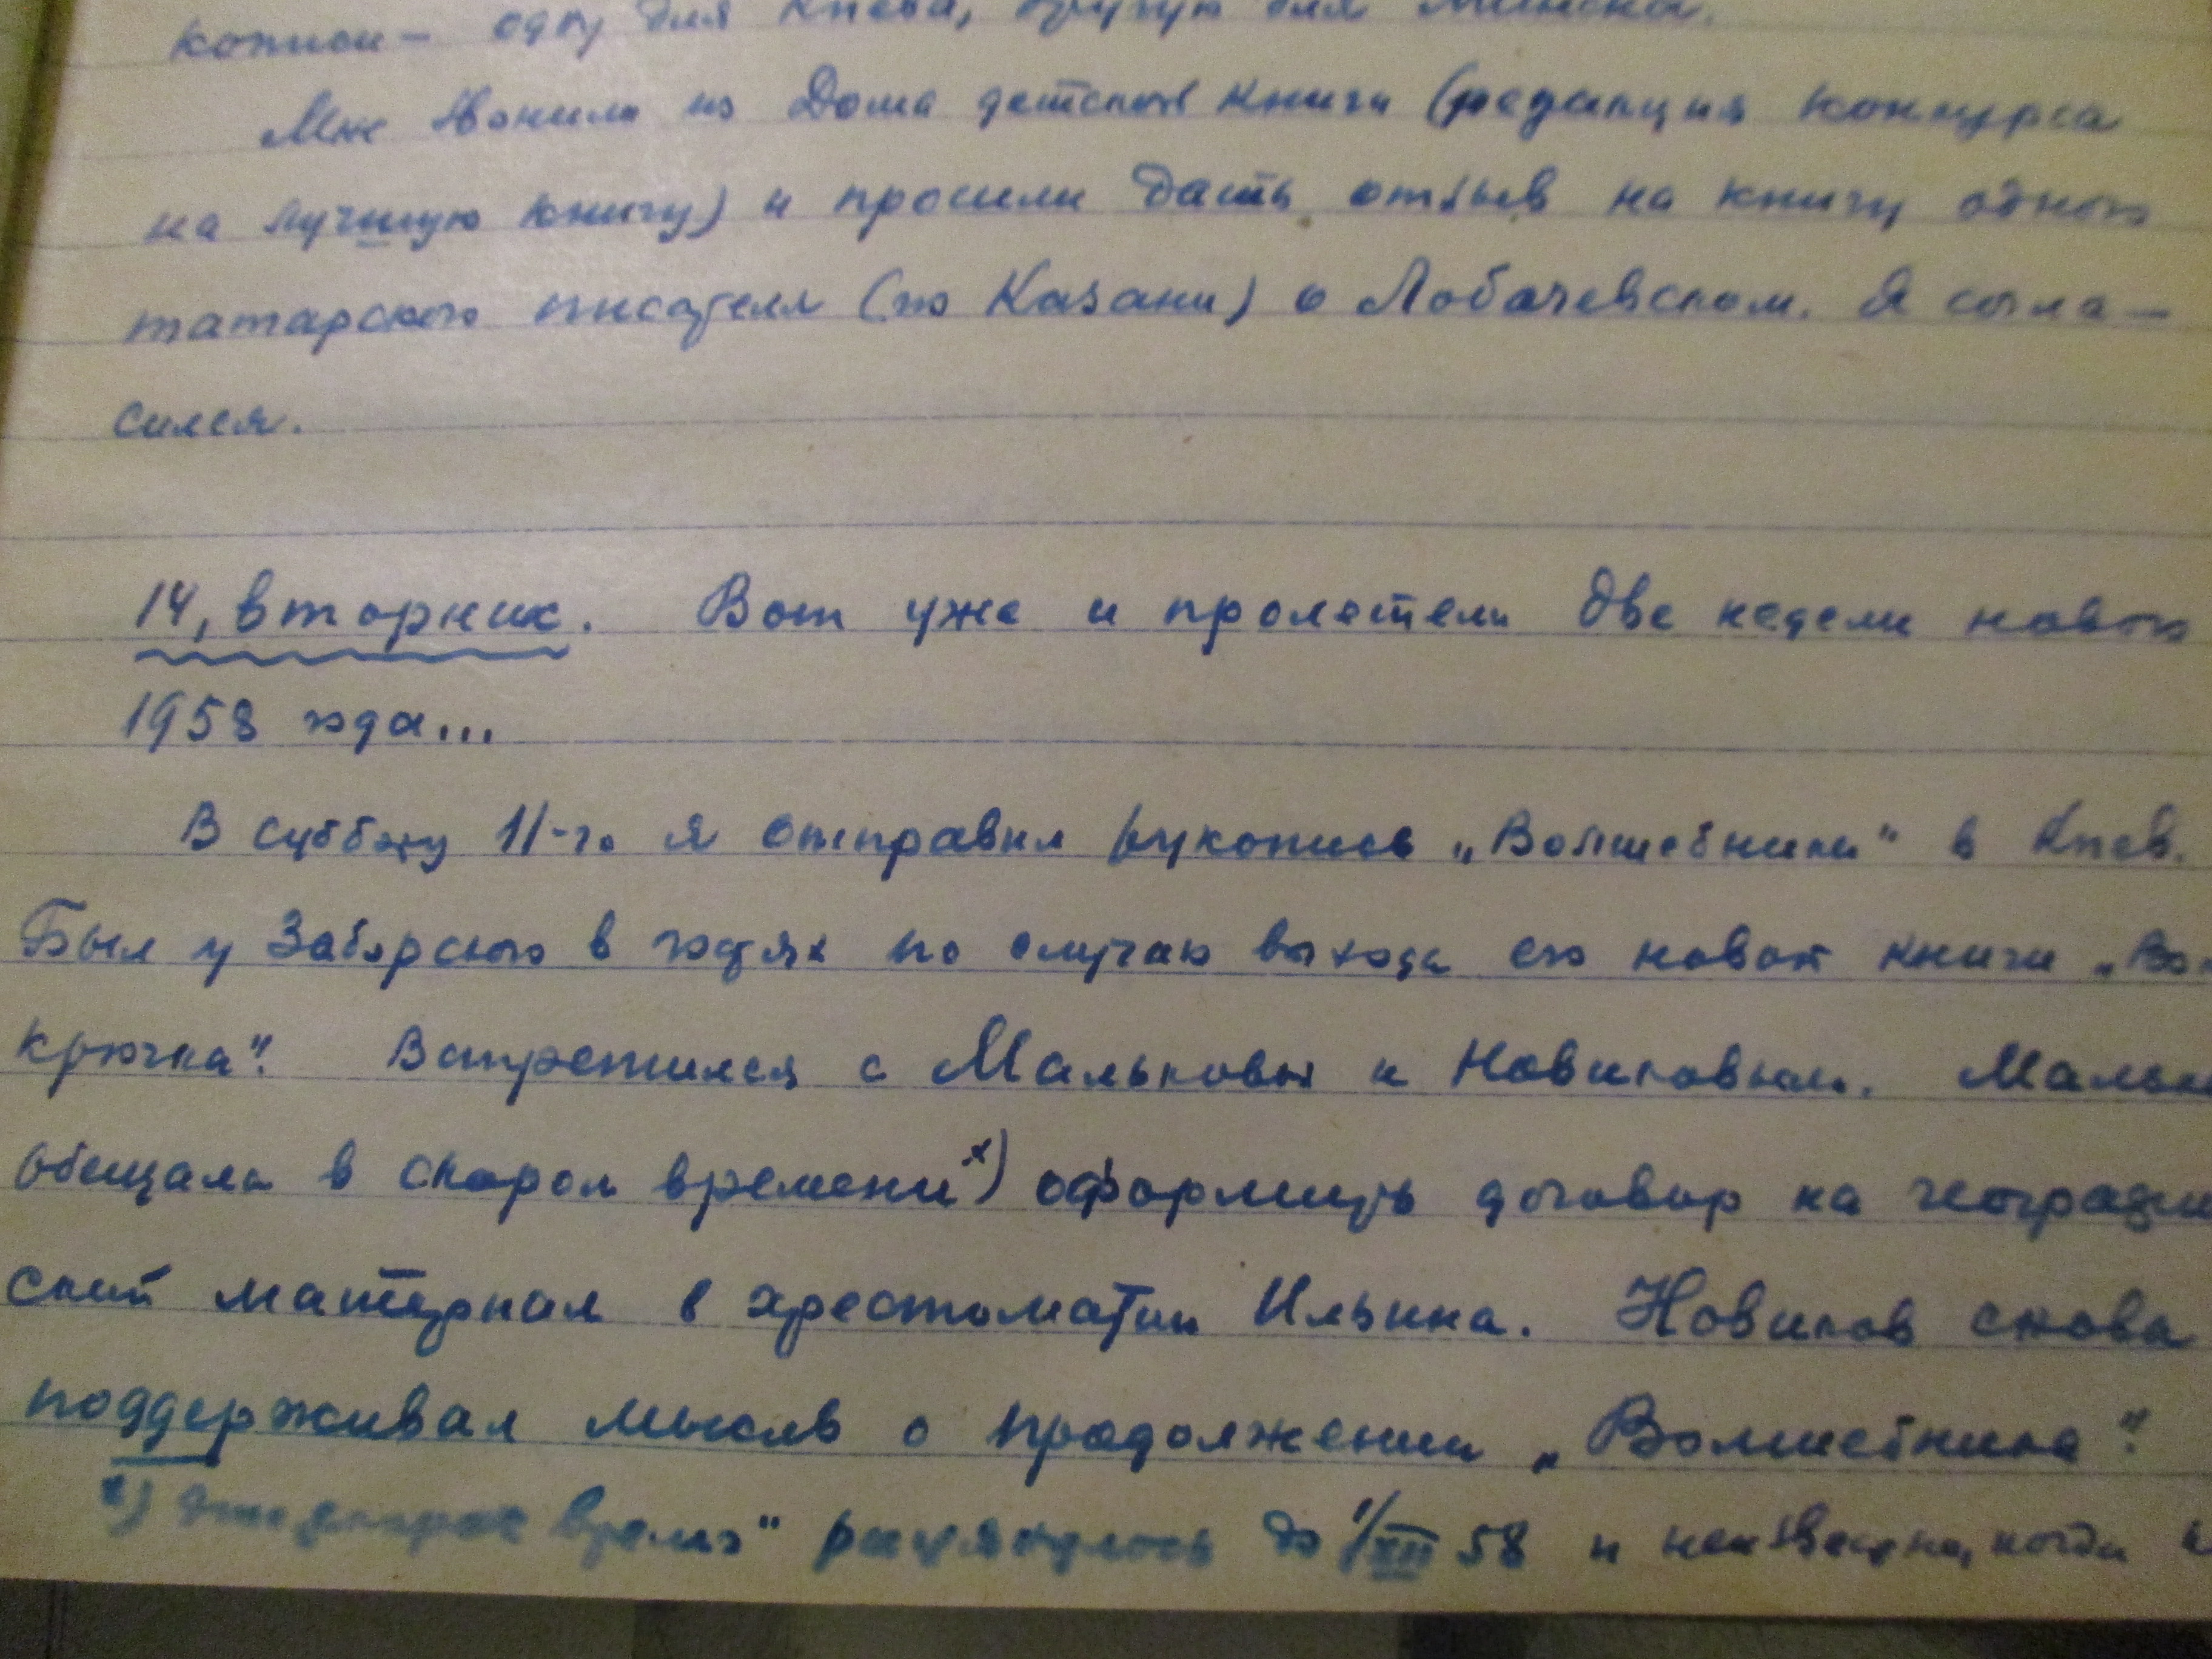 копии – одну для Киева, другую для Минска.
Мне звонили из Дома детской книги (редакция конкурса
на лучшую книгу) и просили дать отзыв на книгу одного
татарского писателя (из Казани) о Лобачевском. Я согла-
сился.
14, вторник. Вот уже и пролетели две недели нового
1958 года...
В субботу 11-го я отправил рукопись „Волшебника" в Киев.
Был у Заборского в гостях по случаю выхода его новой книги
крючка". Встретился с Мальковой и Новиковым.
обещала в скором времени х) оформить договор на
ский материал в хрестоматии Ильина. Новиков снова
поддерживал мысль о продолжении „Волшебника".
х) Это „скорое время" растянулось до 1/XII 58 и неизвестно, когда